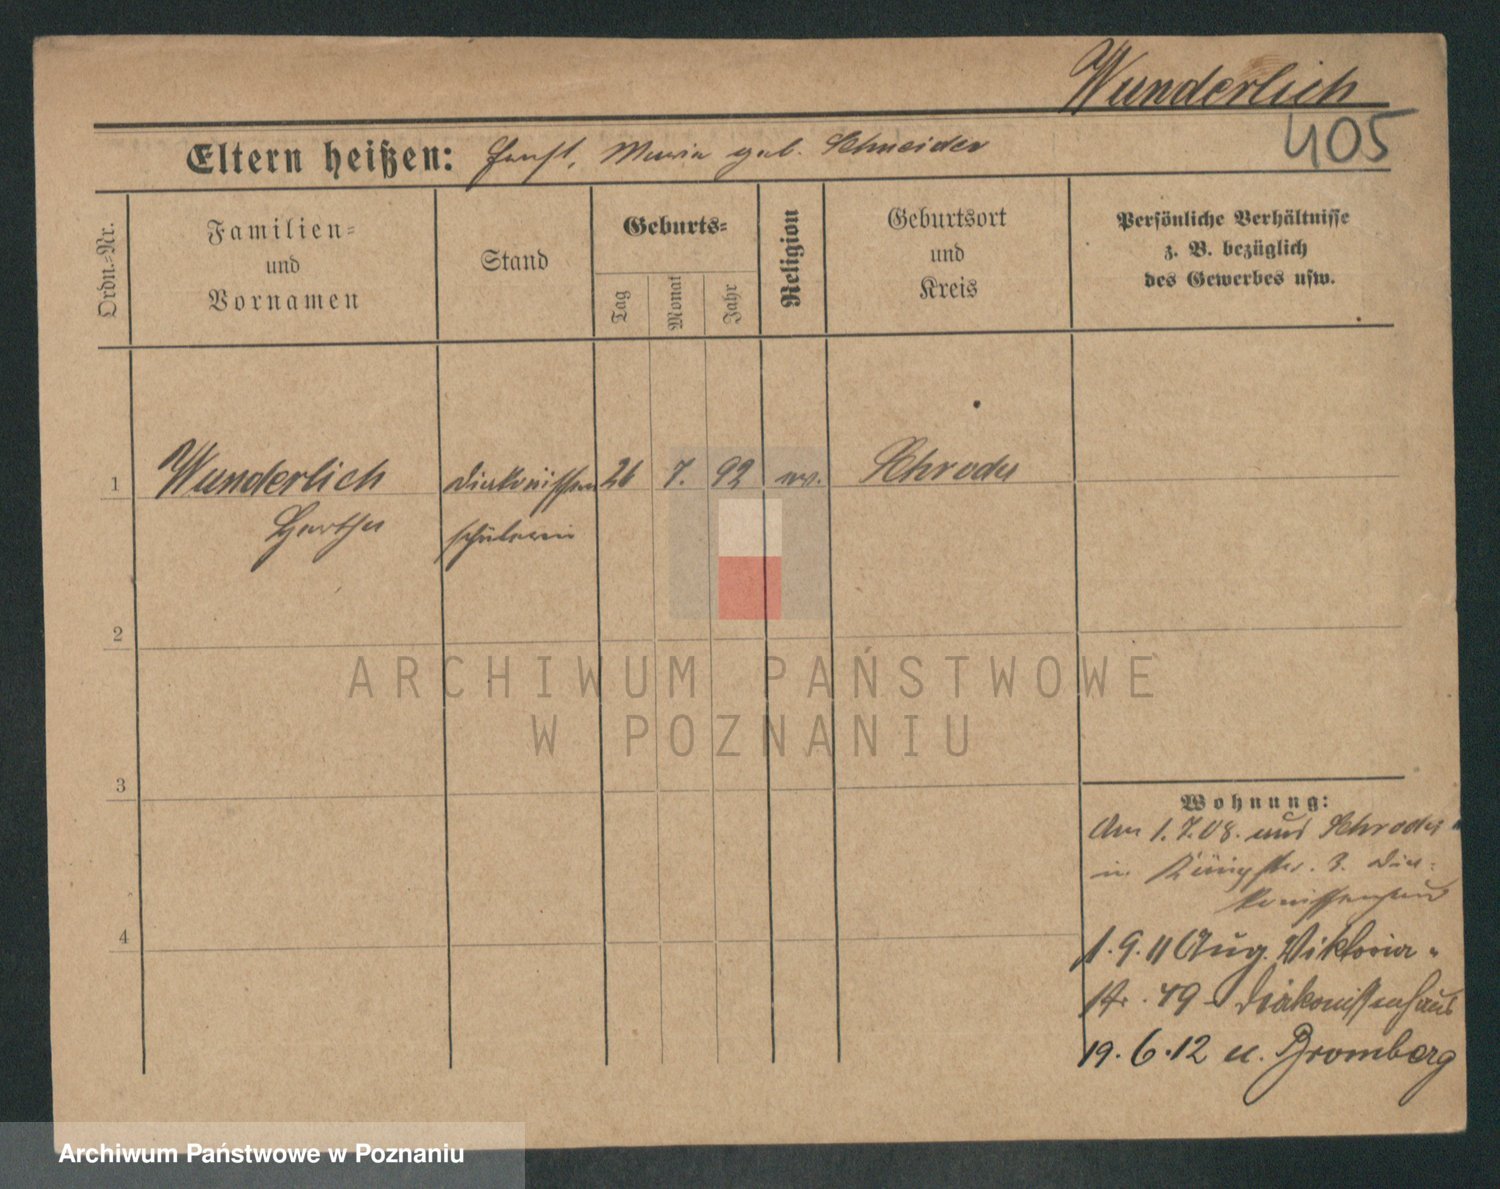 Wunderlich
405
Eltern heißen: Ernst, Maria geb. Schneider
Ordn.-Nr.
Familien-
und
Vornamen
Stand
Geburts-
Tag
Monat
Jahr
Religion
Geburtsort
und
Kreis
Persönliche Verhältnisse
z. B. bezüglich
des Gewerbes usw.
1 Wunderlich Diakonissen 26 7. 92 ev. Schroda
Hertha schülerin
2
ARCHIWUM PAŃSTWOWE
W POZNANIU
3
Wohnung:
Am 1.7.08. aus Schroda
in Königstr. 3. Dia-
konissenhaus
1.9.11 Aug. Viktoria-
4
str. 49 - Diakonissenhaus
19.6.12 n. Bromberg
Archiwum Państwowe w Poznaniu